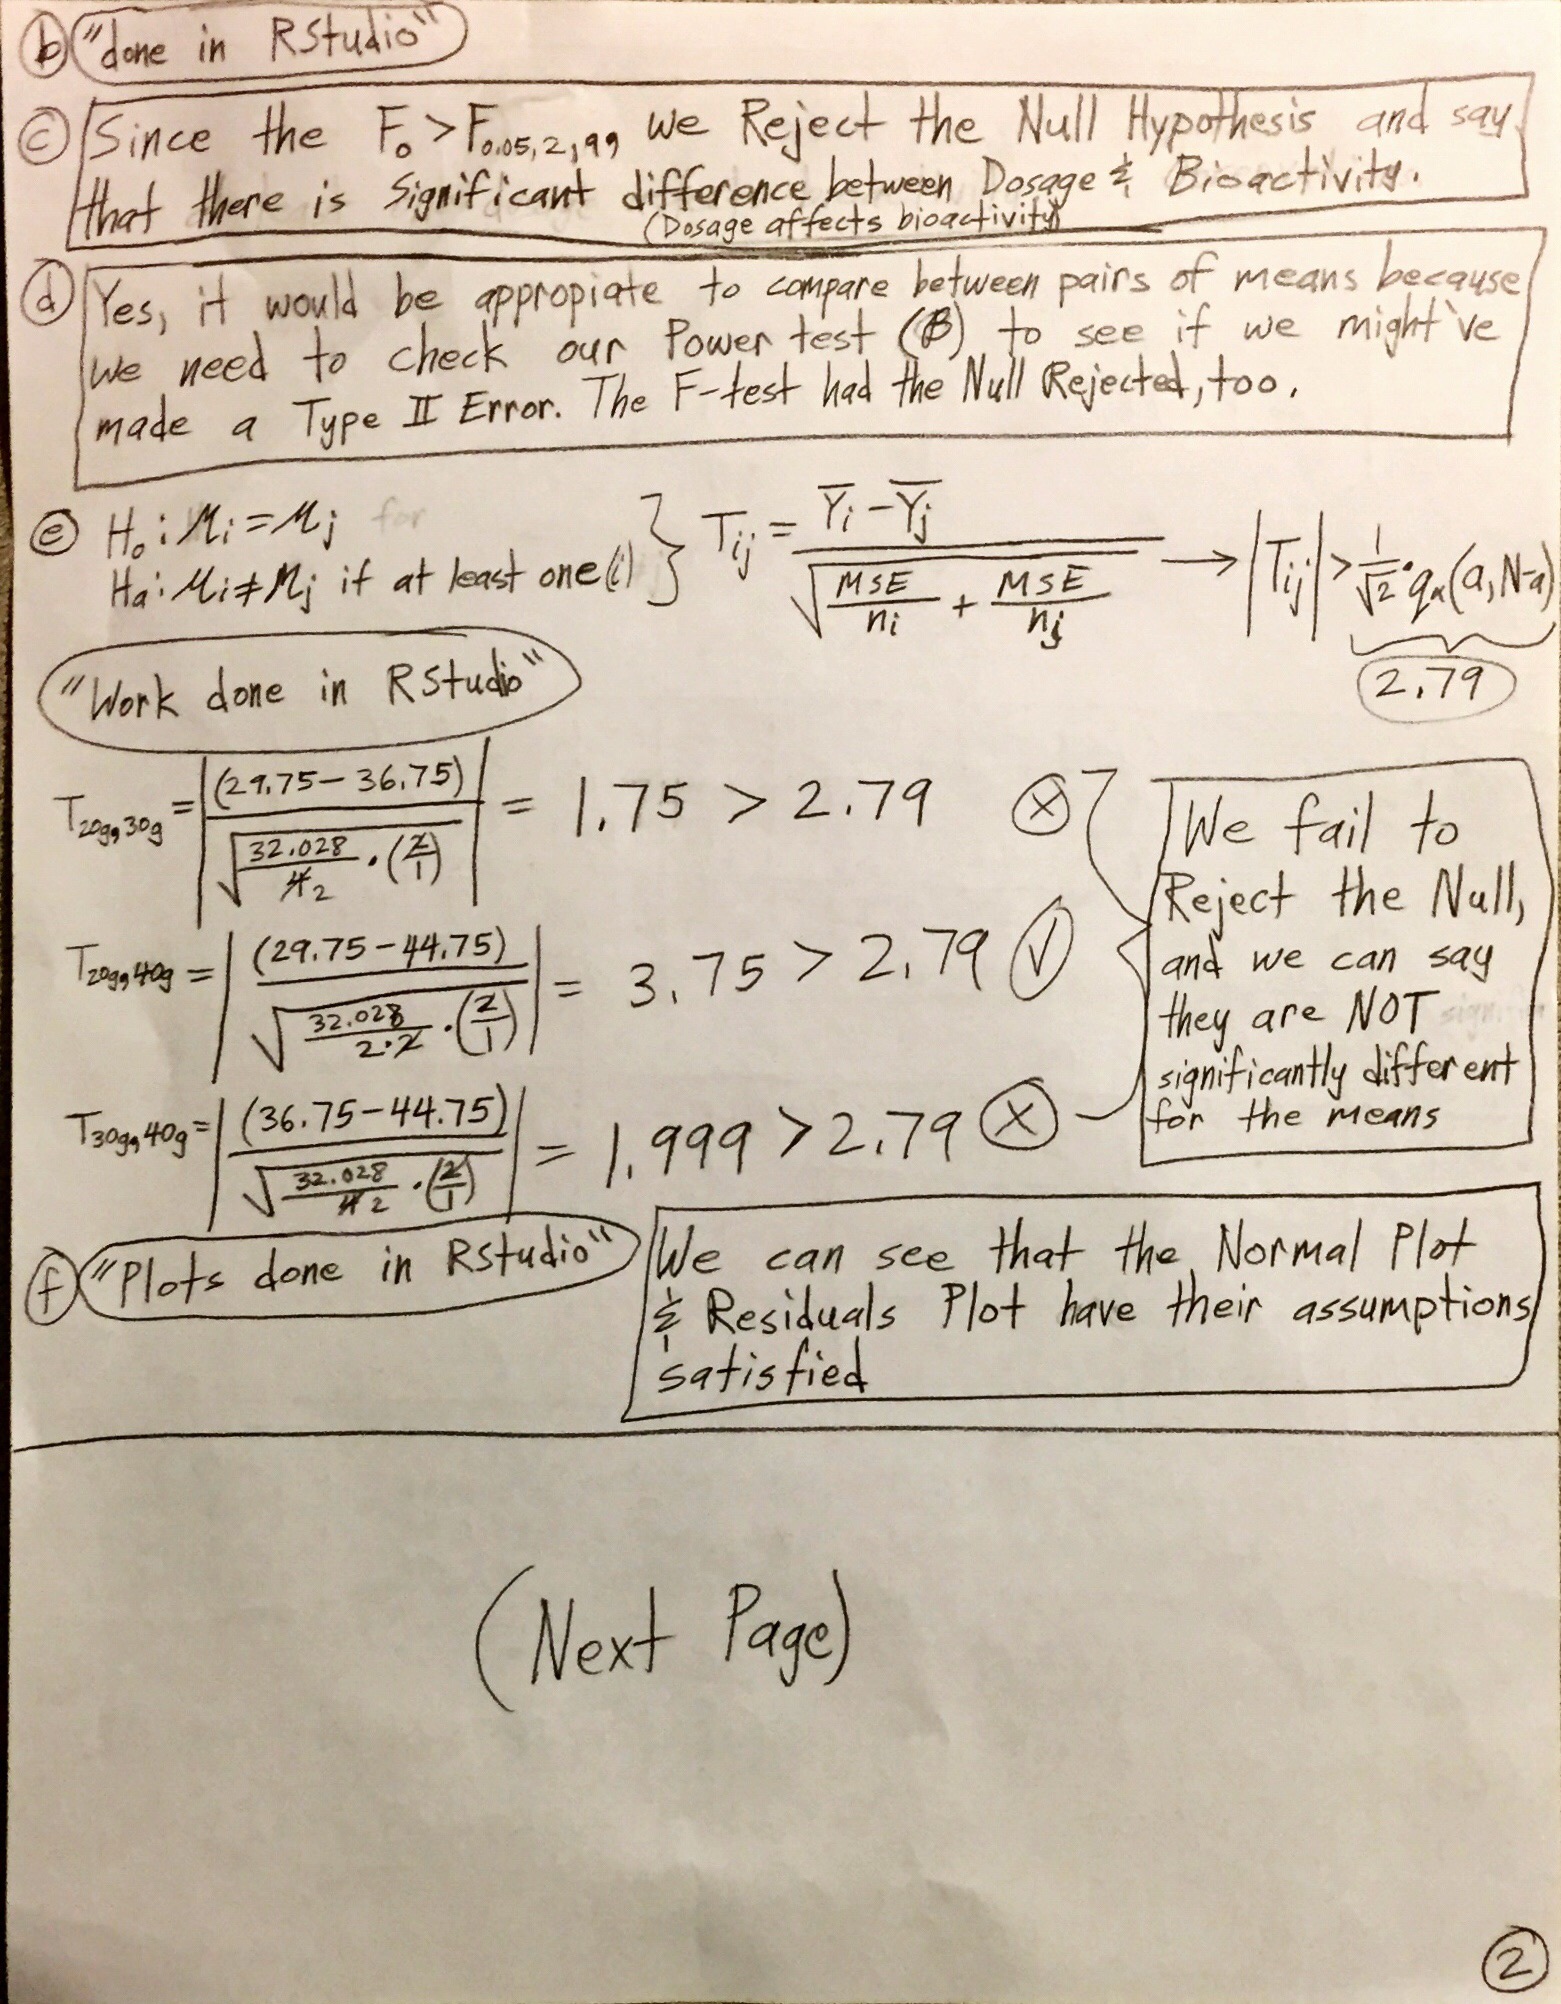 ⓑ "done in RStudio"
ⓒ Since the F₀ > F₀.₀₅,₂,₉₉ we Reject the Null Hypothesis and say
that there is Significant difference between Dosage & Bioactivity.
(Dosage affects bioactivity)
ⓓ Yes, it would be appropiate to compare between pairs of means because
we need to check our Power test (β) to see if we might've
made a Type II Error. The F-test had the Null Rejected, too.
ⓔ H₀: μi = μj for
Ha: μi ≠ μj if at least one (i) } Tij = (Ȳi - Ȳj) / √(MSE/ni + MSE/nj) → |Tij| > 1/√2 · qα(a, N-a)
2.79
"Work done in RStudio"
T20g,30g = |(29.75 - 36.75) / √(32.028/4 2 · (2/1))| = 1.75 > 2.79 ⓧ
T20g,40g = |(29.75 - 44.75) / √(32.028/2·2 · (2/1))| = 3.75 > 2.79 ✓
T30g,40g = |(36.75 - 44.75) / √(32.028/4 2 · (2/1))| = 1.999 > 2.79 ⓧ
We fail to
Reject the Null,
and we can say
they are NOT
significantly different
for the means
ⓕ "Plots done in RStudio"
We can see that the Normal Plot
& Residuals Plot have their assumptions
satisfied
(Next Page)
②